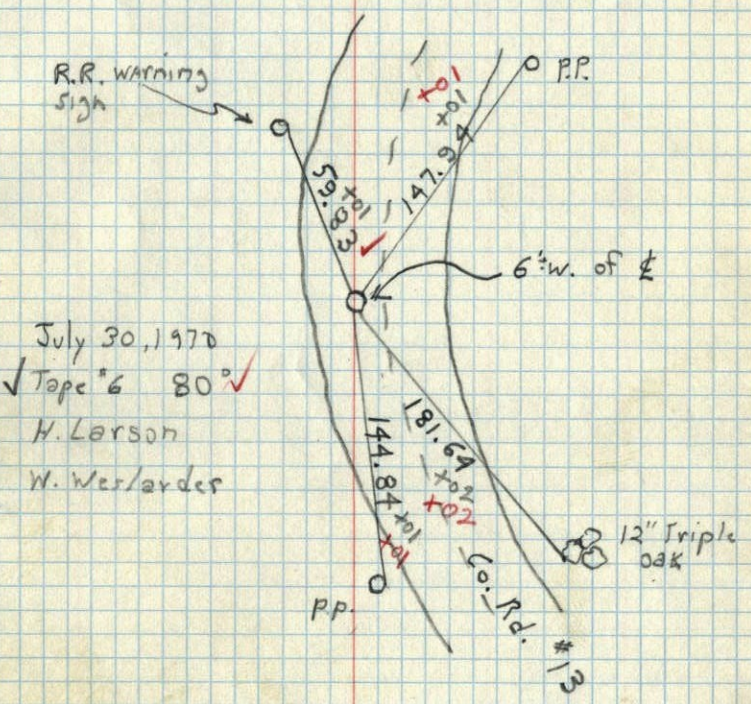 R.R. WARNING
Sign
P.P.
+01
+01
147.94
59.83
+01
6"±w. of ℄
July 30, 1970
Tape #6 80°
H. Larson
W.
181.64
+02
+02
144.84
+01
+01
12" Triple
oak
P.P.
Co. Rd. #13